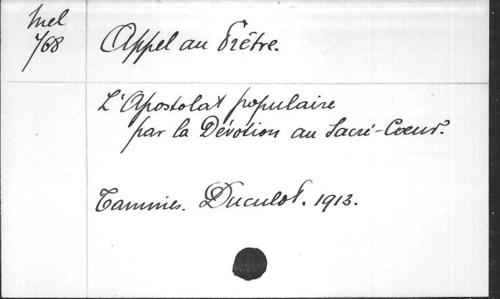 Mel
768
Appel au Prêtre.
L'Apostolat populaire
par la Dévotion au Sacré-Coeur.
Tamines. Duculot. 1913.